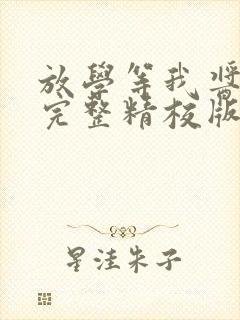 放學等我 酱
完整精校版
星洼朱子